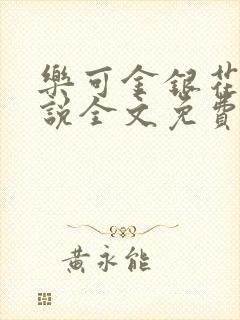 樂可金銀花
說全文免費
黃永能